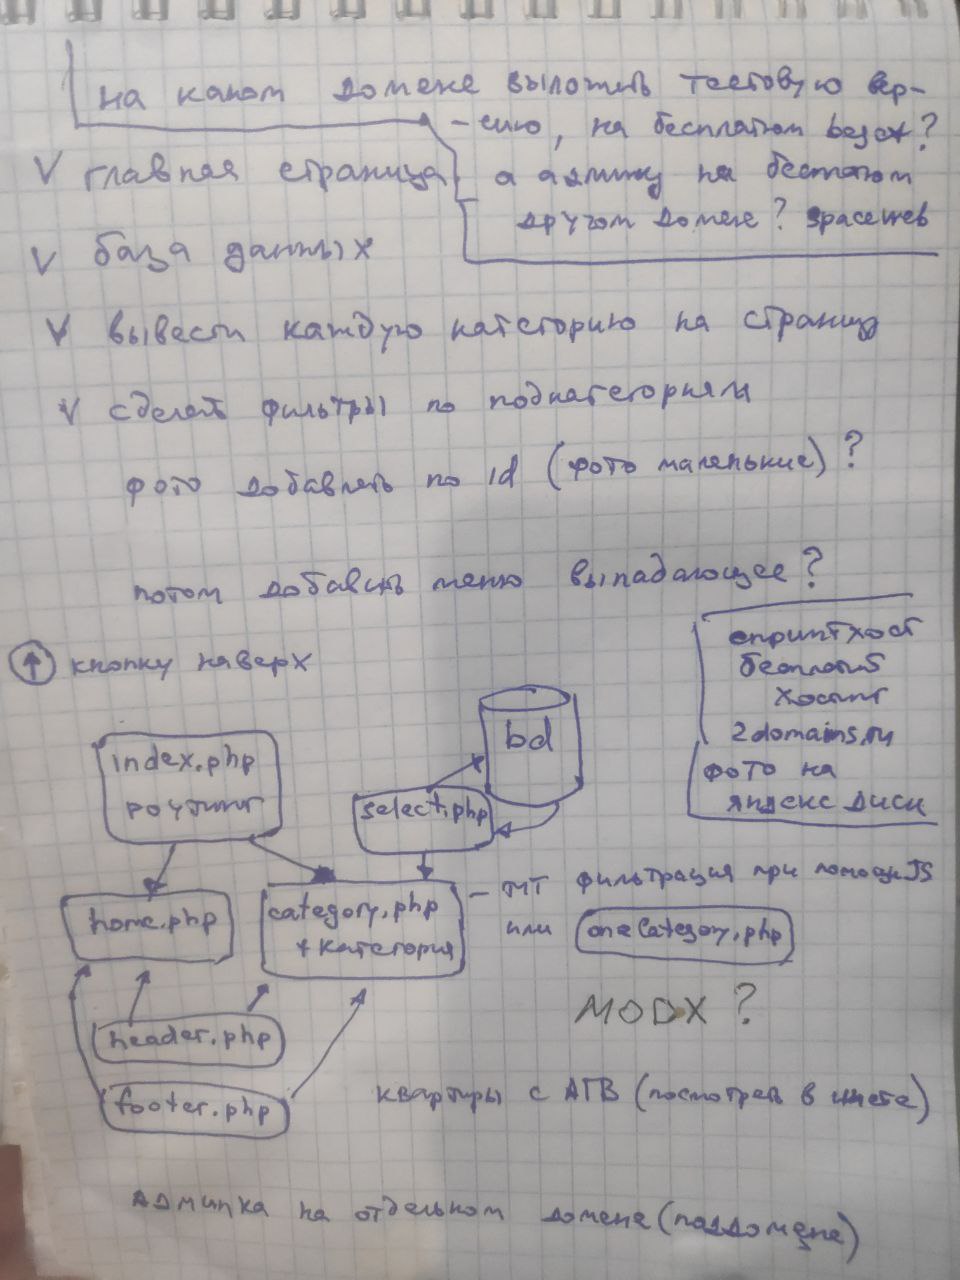 на каком домене выложить тестовую вер-
- сию, на бесплатном beget?
а админку на бесплатном
другом домене?
V главная страница
V база данных
V вывести каждую категорию на страниц
V сделать фильтры по подкатегориям
фото добавлять по id (фото маленькие)?
потом добавить меню выпадающее?
↑ кнопку наверх
спринтхост
бесплатн
хостинг
2domains.ru
фото на
яндекс диск
bd
index.php
роутинг
select.php
home.php
category.php
+ категория
- тут фильтрация при помощи JS
или oneCategory.php
MODX ?
header.php
footer.php
квартиры с АГВ (посмотреть в инете)
Админка на отдельном домене (поддомене)